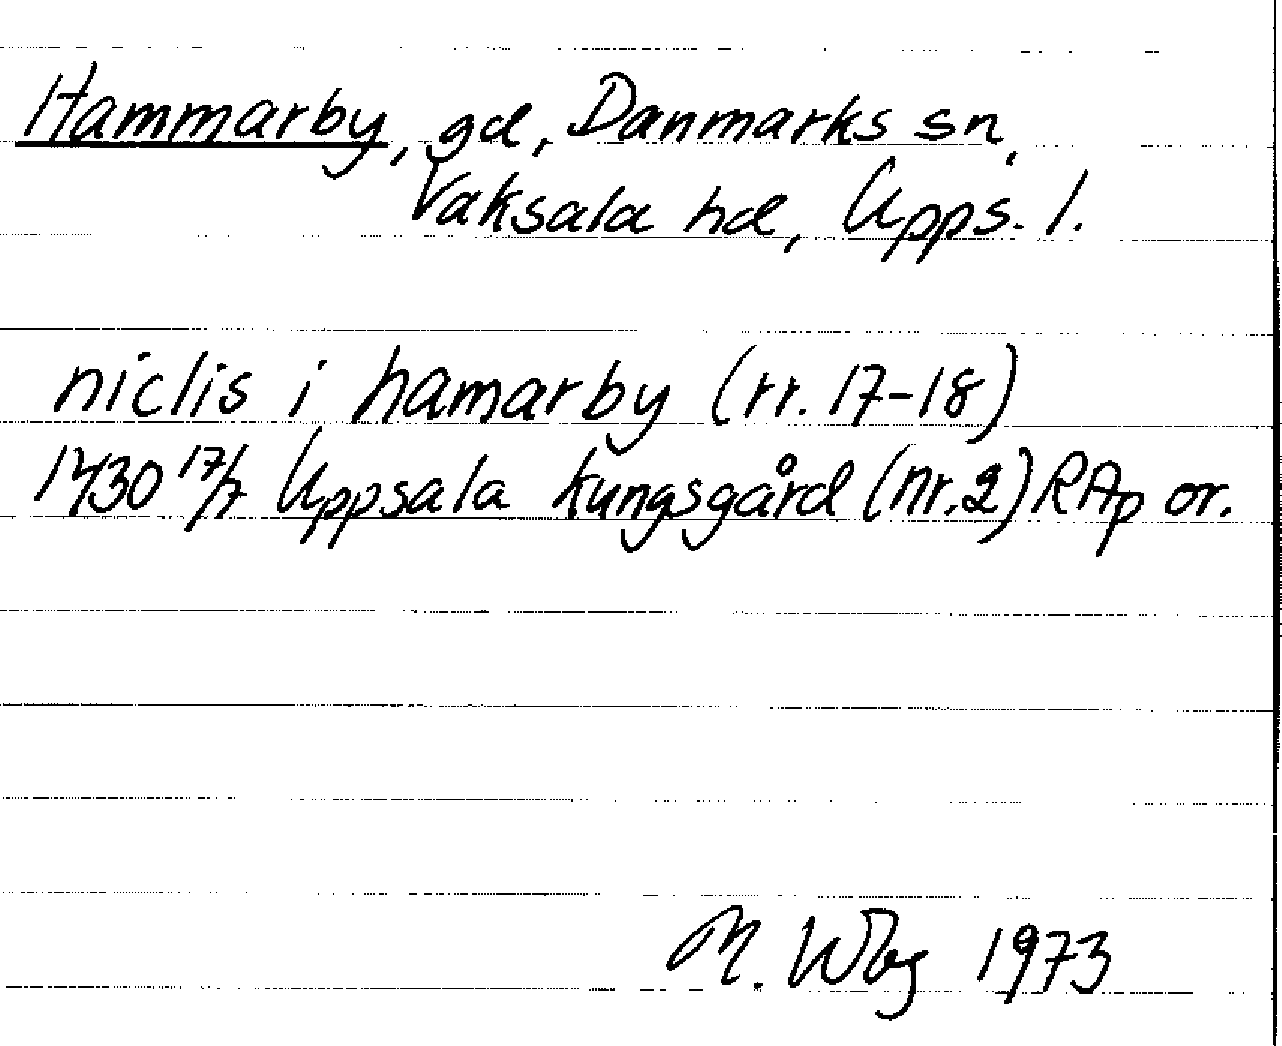 Hammarby, gd, Danmarks sn,
Vaksala hd, Upps. l.
niclis i hamarby (rr. 17-18)
1430 17/7 Uppsala kungsgård (nr. 2) RAp or.
M. Wbg 1973